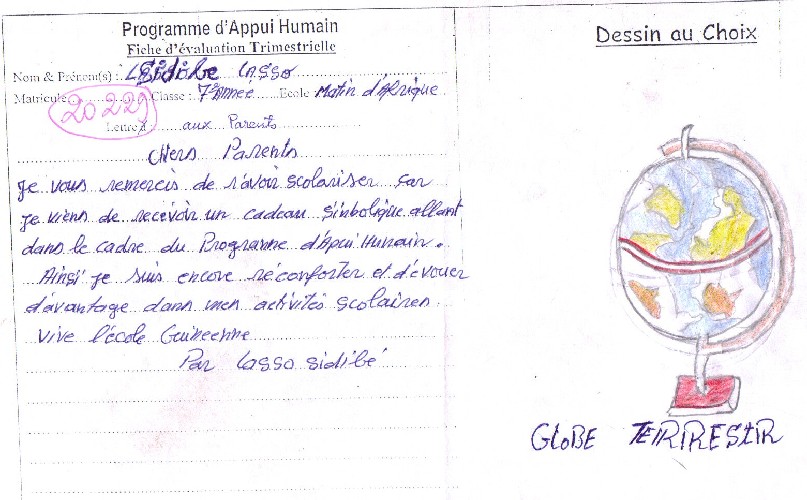 Programme d'Appui Humain
Fiche d'évaluation Trimestrielle
Nom & Prénom(s) : Sidibe Lasso
Matricule 20 229 Classe : 7e Année Ecole Matin d'Afrique
Lettre à : aux Parents
Chers Parents
Je vous remercis de m'avoir scolariser car
je viens de recevoir un cadeau simbolique allant
dans le cadre du Programme d'Apui Humain.
Ainsi je suis encore réconforter et dévouer
d'avantage dans mes activités scolaires
Vive l'école Guineenne
Par Lasso sidibé
Dessin au Choix
GLOBE TERIRESTIR